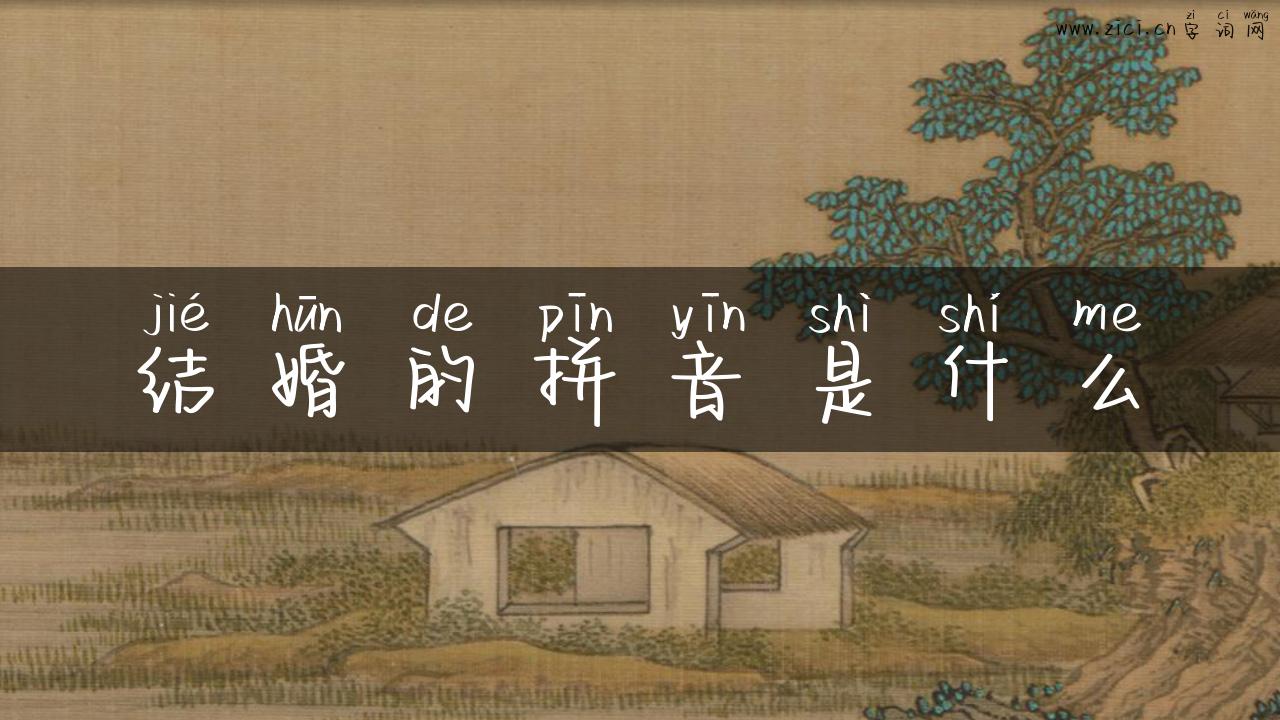 zì cí wǎng
www.zici.cn 字 词 网
jié hūn de pīn yīn shì shí me
结 婚 的 拼 音 是 什 么